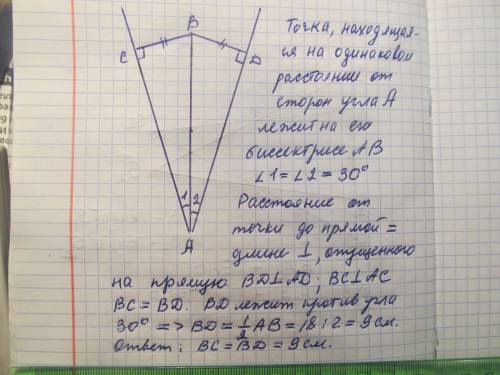 B
C
D
1 2
A
Точка, находящая-
ся на одинаковом
расстояние от
сторон угла А
лежит на его
биссектрисе АВ
∠1 = ∠2 = 30°
Расстояние от
точки до прямой =
длине ⊥, опущенного
на прямую BD⊥AD; BC⊥AC
BC = BD. BD лежит против угла
30° => BD = 1/2 AB = 18 : 2 = 9 см.
Ответ: BC = BD = 9 см.